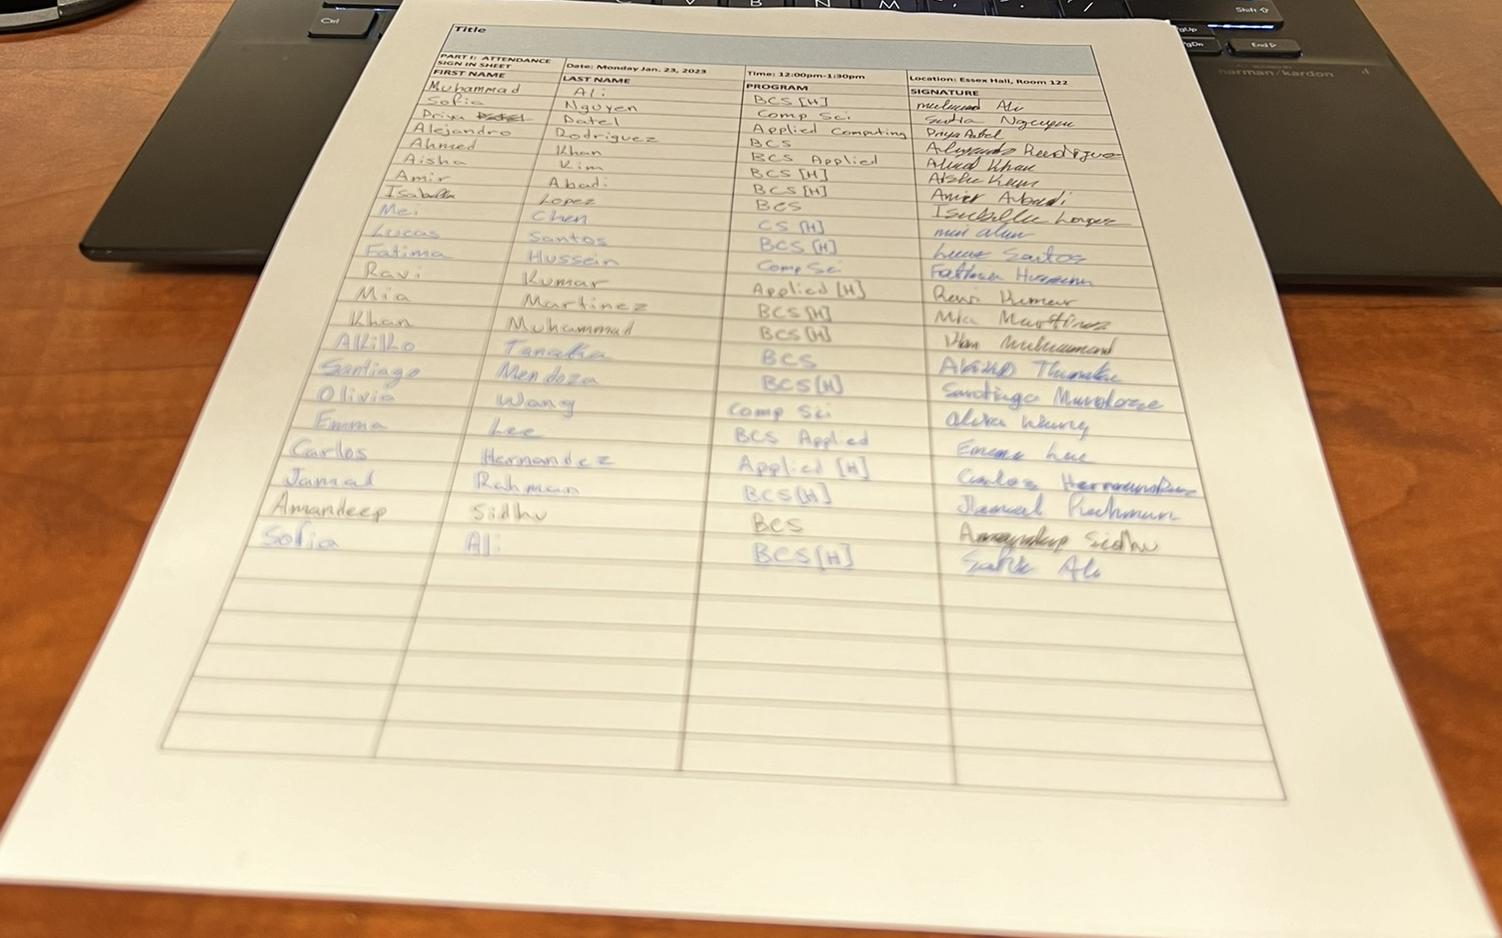 Ctrl V B N M , . / Shift
PgUp
PgDn End
harman/kardon
Title
PART I: ATTENDANCE SIGN IN SHEET Date: Monday Jan. 23, 2023 Time: 12:00pm-1:30pm Location: Essex Hall, Room 122
FIRST NAME LAST NAME PROGRAM SIGNATURE
Muhammad Ali BCS [H] Ali
Sofia Nguyen Comp Sci Nguyen
Priya Patel Applied Computing Priya Patel
Alejandro Rodriguez BCS Alejandro Rodriguez
Ahmed Khan BCS Applied Ahmed Khan
Aisha Kim BCS [H] Aisha Kim
Amir Abadi BCS [H] Amir Abadi
Isabella Lopez BCS Isabella Lopez
Mei Chen CS [H]
Lucas Santos BCS [H] Lucas Santos
Fatima Hussein Comp Sci Fatima
Ravi Kumar Applied [H] Ravi Kumar
Mia Martinez BCS [H] Mia Martinez
Khan Muhammad BCS [H]
Akiko Tanaka BCS
Santiago Mendoza BCS [H] Santiago
Olivia Wang Comp Sci
Emma Lee BCS Applied Emma Lee
Carlos Hernandez Applied [H] Carlos
Jamal Rahman BCS [H] Jamal Rahman
Amandeep Sidhu BCS Sidhu
Sofia Ali BCS [H] Ali